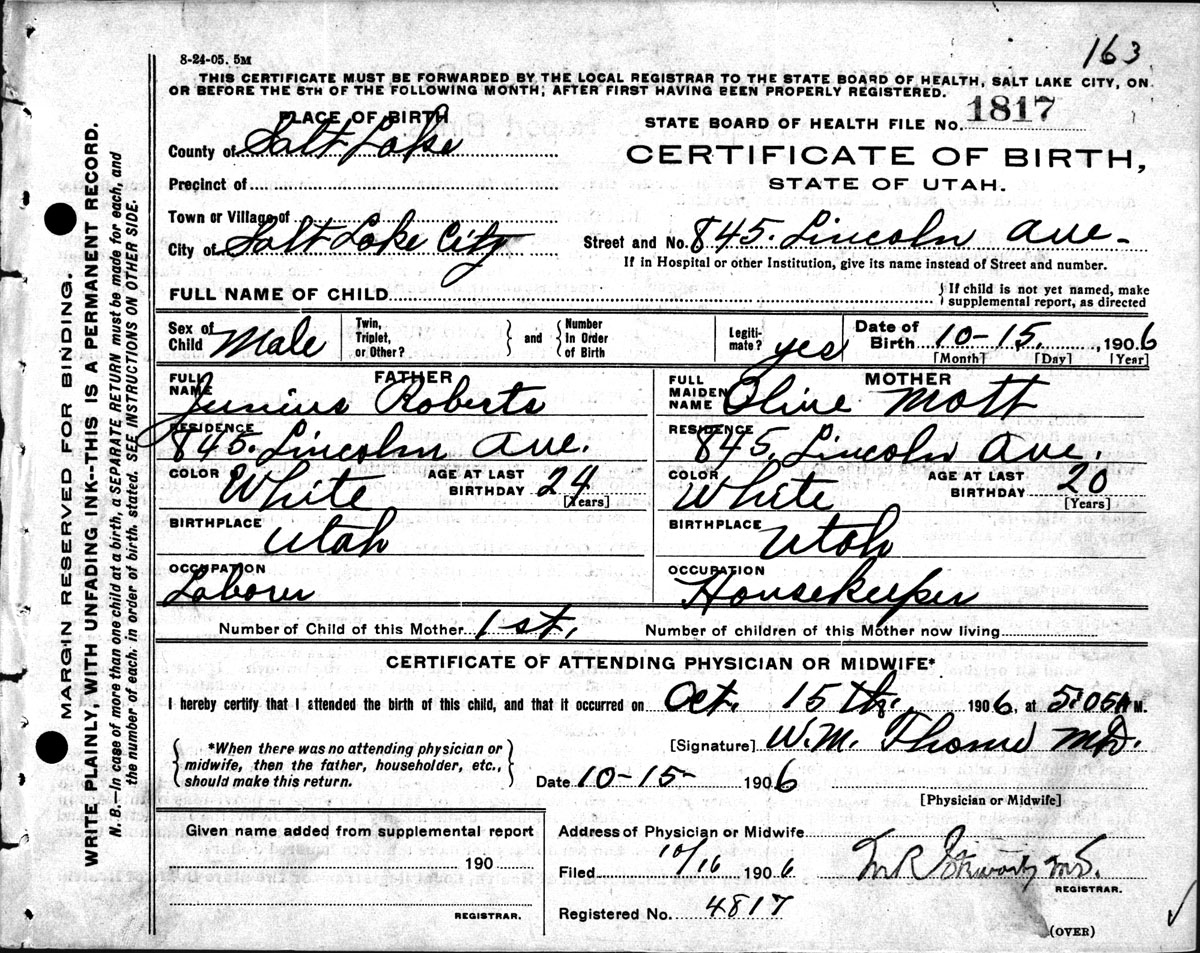 163
8-24-05. 5M
THIS CERTIFICATE MUST BE FORWARDED BY THE LOCAL REGISTRAR TO THE STATE BOARD OF HEALTH, SALT LAKE CITY, ON
OR BEFORE THE 5TH OF THE FOLLOWING MONTH; AFTER FIRST HAVING BEEN PROPERLY REGISTERED.
PLACE OF BIRTH
STATE BOARD OF HEALTH FILE No. 1817
County of Salt Lake
CERTIFICATE OF BIRTH,
Precinct of
STATE OF UTAH.
Town or Village of
City of Salt Lake City
Street and No. 845. Lincoln Ave.
If in Hospital or other Institution, give its name instead of Street and number.
FULL NAME OF CHILD
} If child is not yet named, make
supplemental report, as directed
Sex of Child Male
Twin, Triplet, or Other?
} and {
Number In Order of Birth
Legiti- mate? yes
Date of Birth 10-15, 1906
[Month] [Day] [Year]
FATHER
FULL NAME Junius Roberts
RESIDENCE 845. Lincoln Ave.
COLOR White AGE AT LAST BIRTHDAY 24 [Years]
BIRTHPLACE Utah
OCCUPATION Laborer
MOTHER
FULL MAIDEN NAME Olive Mott
RESIDENCE 845. Lincoln Ave.
COLOR White AGE AT LAST BIRTHDAY 20 [Years]
BIRTHPLACE Utah
OCCUPATION Housekeeper
Number of Child of this Mother 1st. Number of children of this Mother now living
CERTIFICATE OF ATTENDING PHYSICIAN OR MIDWIFE*
I hereby certify that I attended the birth of this child, and that it occurred on Oct. 15th. 1906, at 5:05 A M.
{ *When there was no attending physician or
midwife, then the father, householder, etc.,
should make this return. }
[Signature] W.M. MD.
Date 10-15- 1906
[Physician or Midwife]
Given name added from supplemental report
190
REGISTRAR.
Address of Physician or Midwife
Filed 10/16 1906
M.D.
REGISTRAR.
Registered No. 4817
(OVER)
MARGIN RESERVED FOR BINDING.
WRITE PLAINLY, WITH UNFADING INK--THIS IS A PERMANENT RECORD.
N. B.—In case of more than one child at a birth, a SEPARATE RETURN must be made for each, and
the number of each, in order of birth, stated. SEE INSTRUCTIONS ON OTHER SIDE.